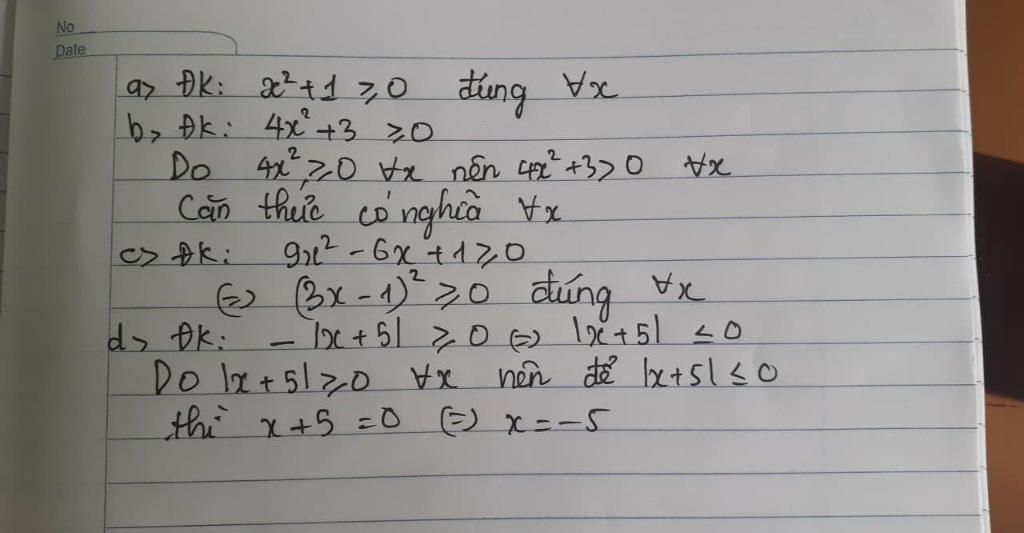 No
Date
a> ĐK: x² + 1 ⩾ 0 đúng ∀x
b> ĐK: 4x² + 3 ⩾ 0
Do 4x² ⩾ 0 ∀x nên 4x² + 3 > 0 ∀x
Căn thức có nghĩa ∀x
c> ĐK: 9x² - 6x + 1 ⩾ 0
(=) (3x - 1)² ⩾ 0 đúng ∀x
d> ĐK: - |x + 5| ⩾ 0 (=) |x + 5| ≤ 0
Do |x + 5| ⩾ 0 ∀x nên để |x + 5| ≤ 0
thì x + 5 = 0 (=) x = -5